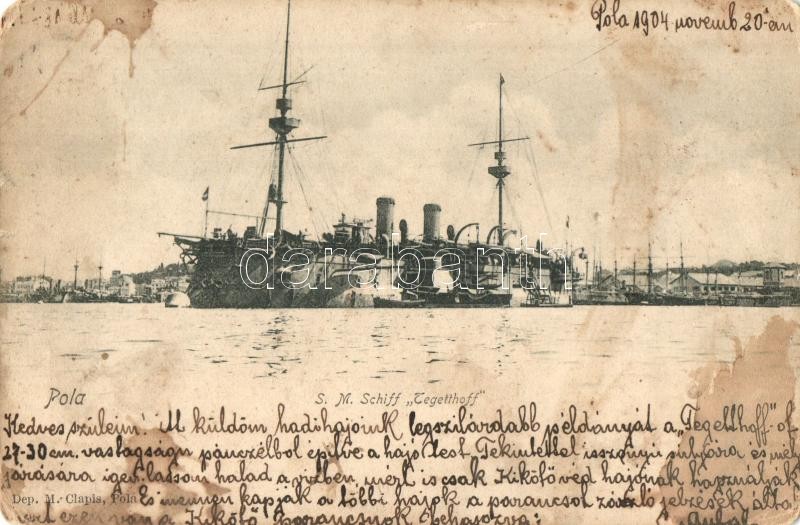 Pola 1904 novemb 20-án
darabanth
Pola
S. M. Schiff „Tegetthoff“
Kedves szüleim! Itt küldöm hadihajónk legszilárdabb példányát a „Tegetthoff"-ot
27-30 cm. vastagságú páncélból építve a hajó test Tekintettel iszonyú súlyára és mély
járására igen lassan halad a vizben, miért is csak Kikötővéd hajónak használják
Dep. M. Clapis, Pola
És innen kapják a többi hajók a parancsot zászló jelzések álta
mert ezen van a Kikötő parancsnok behajózva: